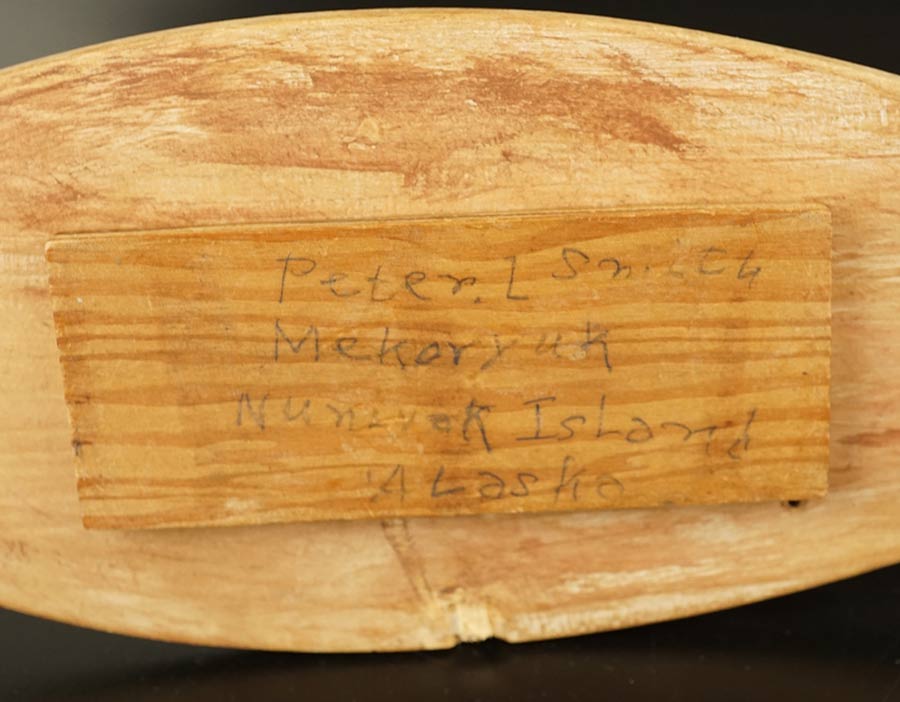 Peter. L Smith
Mekoryuk
Nunivak Island
Alaska